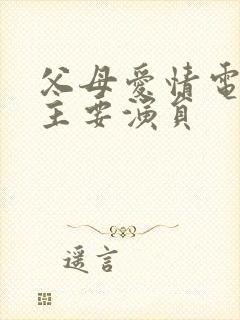 父母爱情电
主要演员
遥言